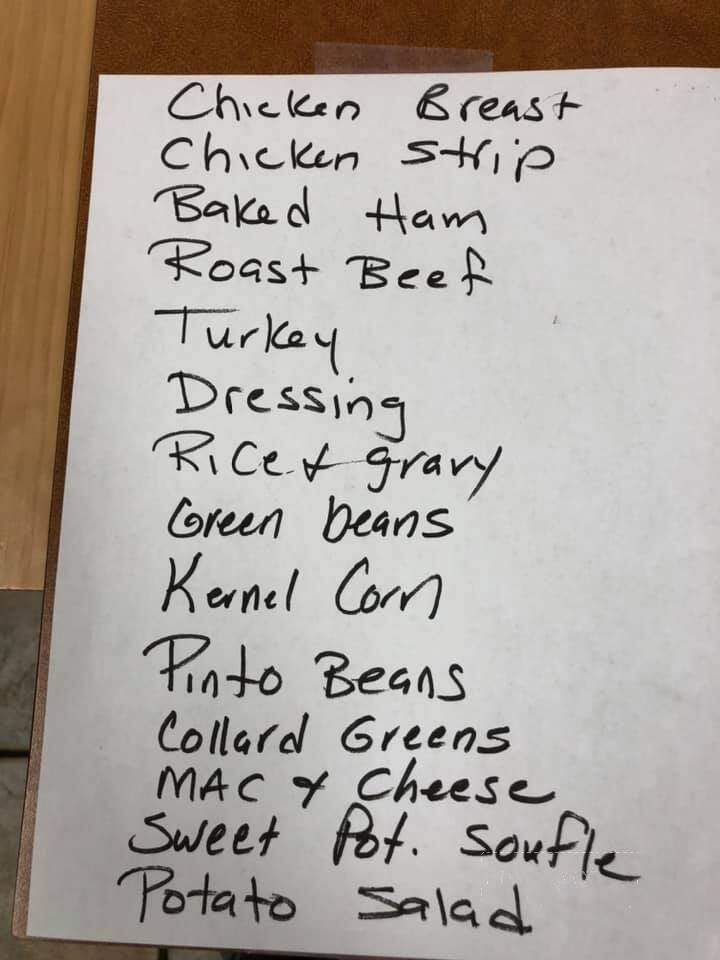 Chicken Breast
Chicken Strip
Baked Ham
Roast Beef
Turkey
Dressing
Rice & gravy
Green beans
Kernel Corn
Pinto Beans
Collard Greens
MAC & Cheese
Sweet Pot. Soufle
Potato Salad